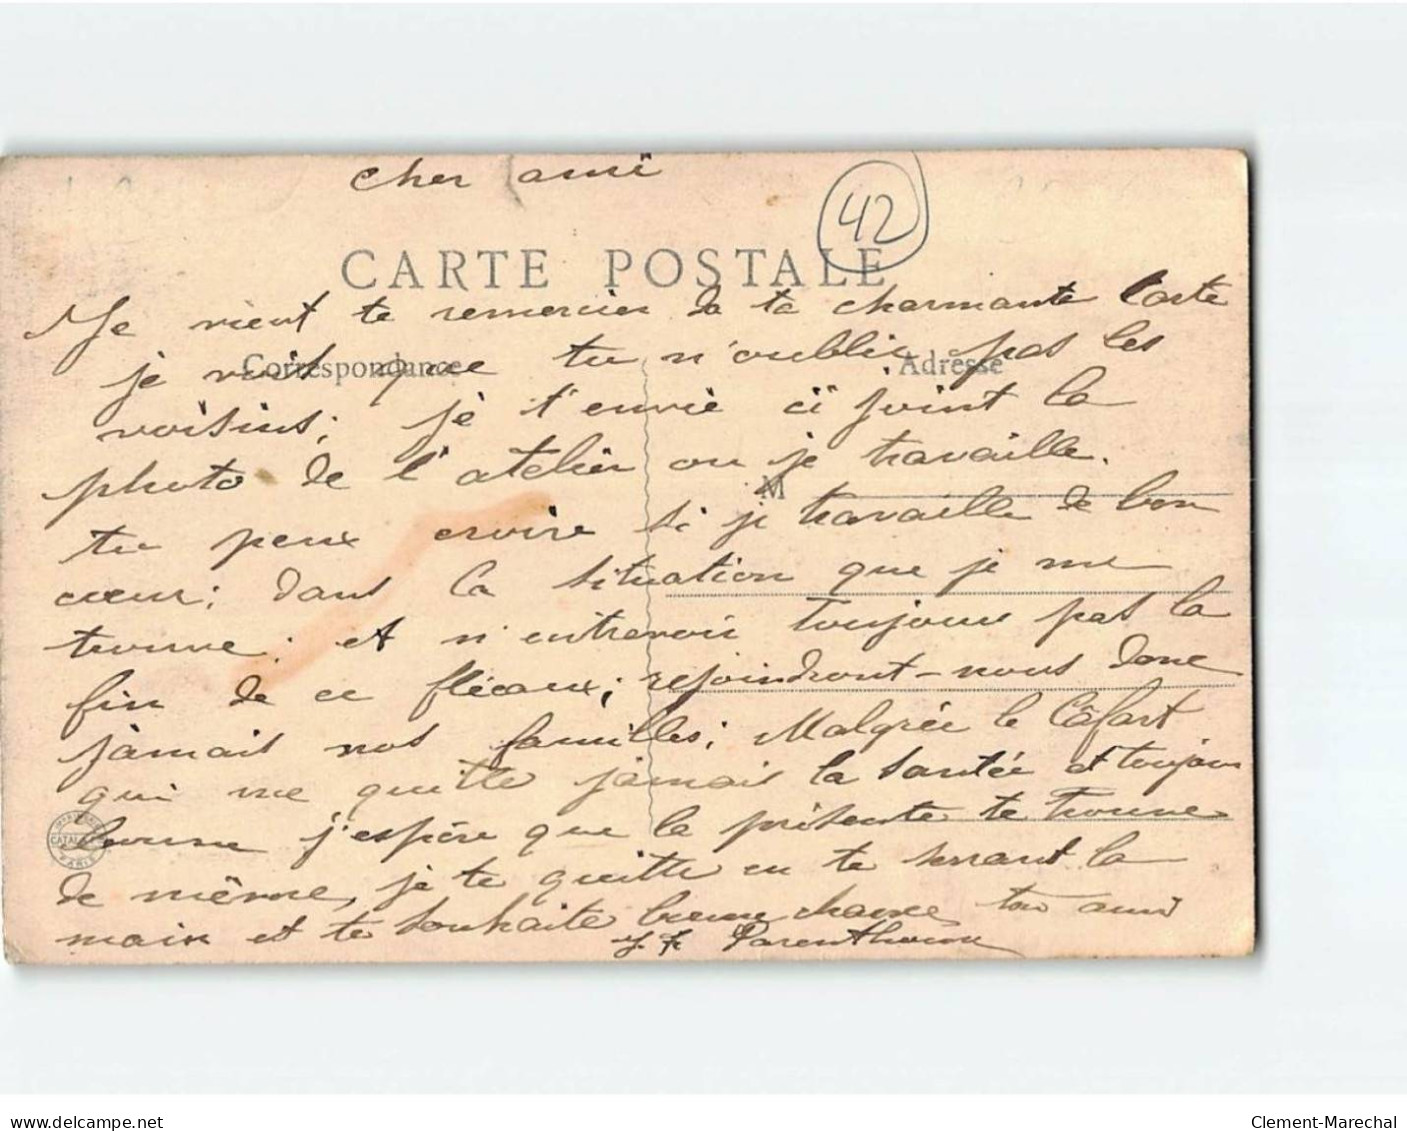 cher ami
42
CARTE POSTALE
Je vient te remercier de ta charmante Carte
Correspondance
Adresse
je voit que tu n'oublie pas les
voisins; je t'envie ci joint la
photo de l'atelier ou je travaille.
M
tu peux croire si je travaille de bon
cœur; dans la situation que je me
trouve; et n'entrevoir toujours pas la
fin de ce fléaux; rejoindront-nous donc
jamais nos familles; Malgrée le Câfart
qui me quitte jamais la santée et toujours
bonne j'espère que la présente te trouve
de même, je te quitte en te serrant la
main et te souhaite bonne chance ton ami
PARIS
Clement-Marechal
www.delcampe.net